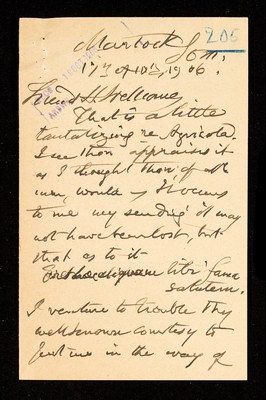 205
Martock Som.
17th of 10th, 1906.
Friend H. Wellcome,
That is a little
tantalizing re Agricola.
I see thou appraises it
as I thought thou, of all
men, would – It occurs
to me my sending it may
not have been lost, but
that as to it –
tibi fama
salutem.
I venture to trouble thy
wellknown courtesy to
me in the way of